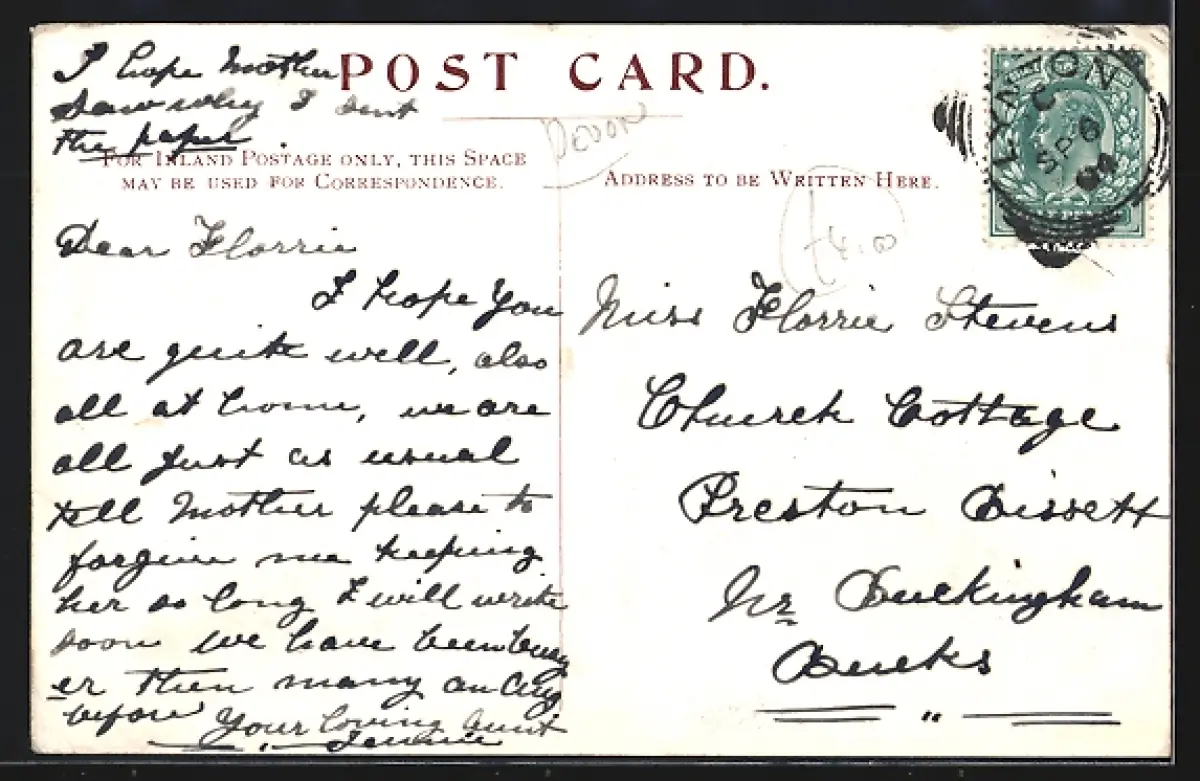 I hope Mother
saw why I sent
the paper.
POST CARD.
FOR INLAND POSTAGE ONLY, THIS SPACE
MAY BE USED FOR CORRESPONDENCE.
DEVON
ADDRESS TO BE WRITTEN HERE.
LYNTON
SP 8
£4.00
Dear Florrie
I hope you
are quite well, also
all at home, we are
all just as usual
tell Mother please to
forgive me keeping
her so long I will write
soon we have been busy
er then many an Aug
before Your loving Aunt
Miss Florrie Stevens
Church Cottage
Preston Bissett
Nr Buckingham
Bucks